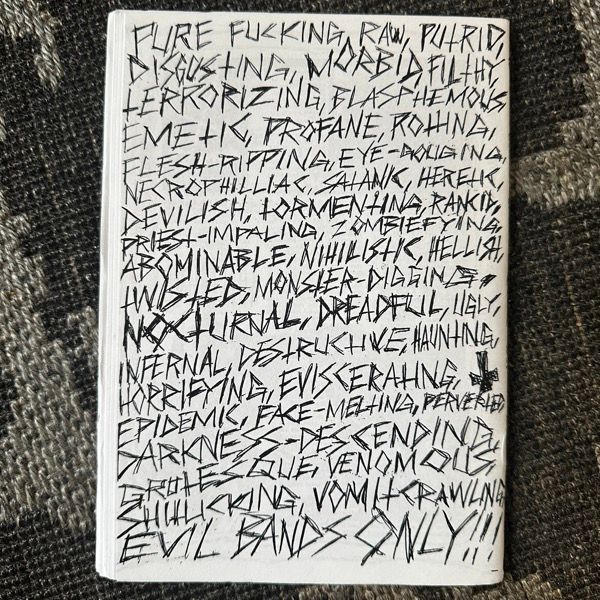 PURE FUCKING, RAW, PUTRID,
DISGUSTING, MORBID, FILTHY,
TERRORIZING, BLASPHEMOUS,
EMETIC, PROFANE, ROTTING,
FLESH-RIPPING, EYE-GOUGING,
NECROPHILLIAC, SATANIC, HERETIC,
DEVILISH, TORMENTING, RANCID,
PRIEST-IMPALING, ZOMBIEFYING,
ABOMINABLE, NIHILISTIC, HELLISH,
TWISTED, MONSTER-DIGGING,
NOCTURNAL, DREADFUL, UGLY,
INFERNAL, DESTRUCTIVE, HAUNTING,
HORRIFYING, EVISCERATING,
EPIDEMIC, FACE-MELTING, PERVERTED,
DARKNESS-DESCENDING,
GROTESQUE, VENOMOUS,
VOMITCRAWLING
EVIL BANDS ONLY!!!